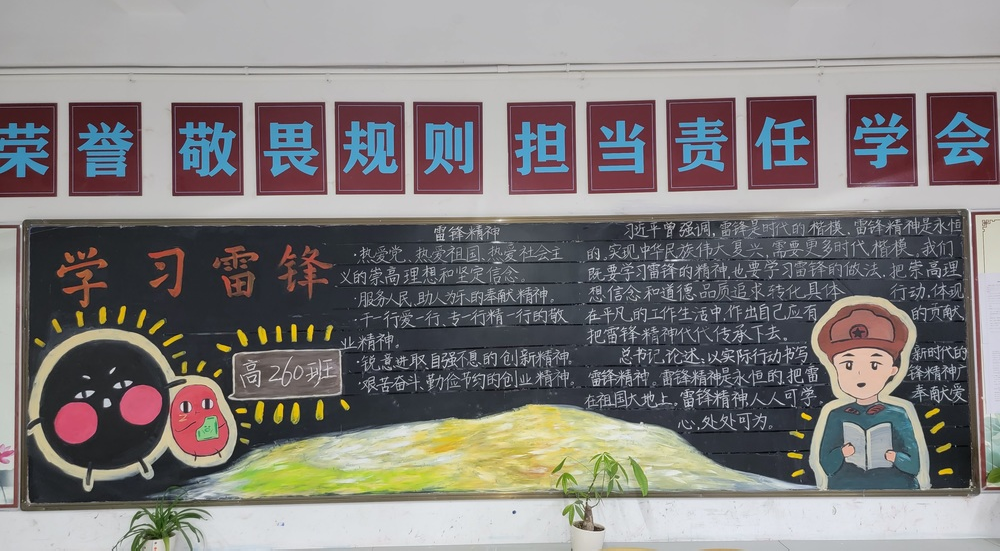 荣誉 敬畏规则 担当责任 学会
学习雷锋
高260班
雷锋精神
·热爱党、热爱祖国、热爱社会主
义的崇高理想和坚定信念。
·服务人民、助人为乐的奉献精神。
·干一行爱一行、专一行精一行的敬
业精神。
·锐意进取自强不息的创新精神。
·艰苦奋斗、勤俭节约的创业精神。
习近平曾强调,雷锋是时代的楷模,雷锋精神是永恒
的,实现中华民族伟大复兴,需要更多时代楷模。我们
既要学习雷锋的精神,也要学习雷锋的做法,把崇高理
想信念和道德品质追求转化具体行动,体现
在平凡的工作生活中,作出自己应有的贡献
把雷锋精神代代传承下去。
总书记论述:以实际行动书写新时代的
雷锋精神。雷锋精神是永恒的,把雷锋精神广
在祖国大地上,雷锋精神人人可学奉献爱
心,处处可为。